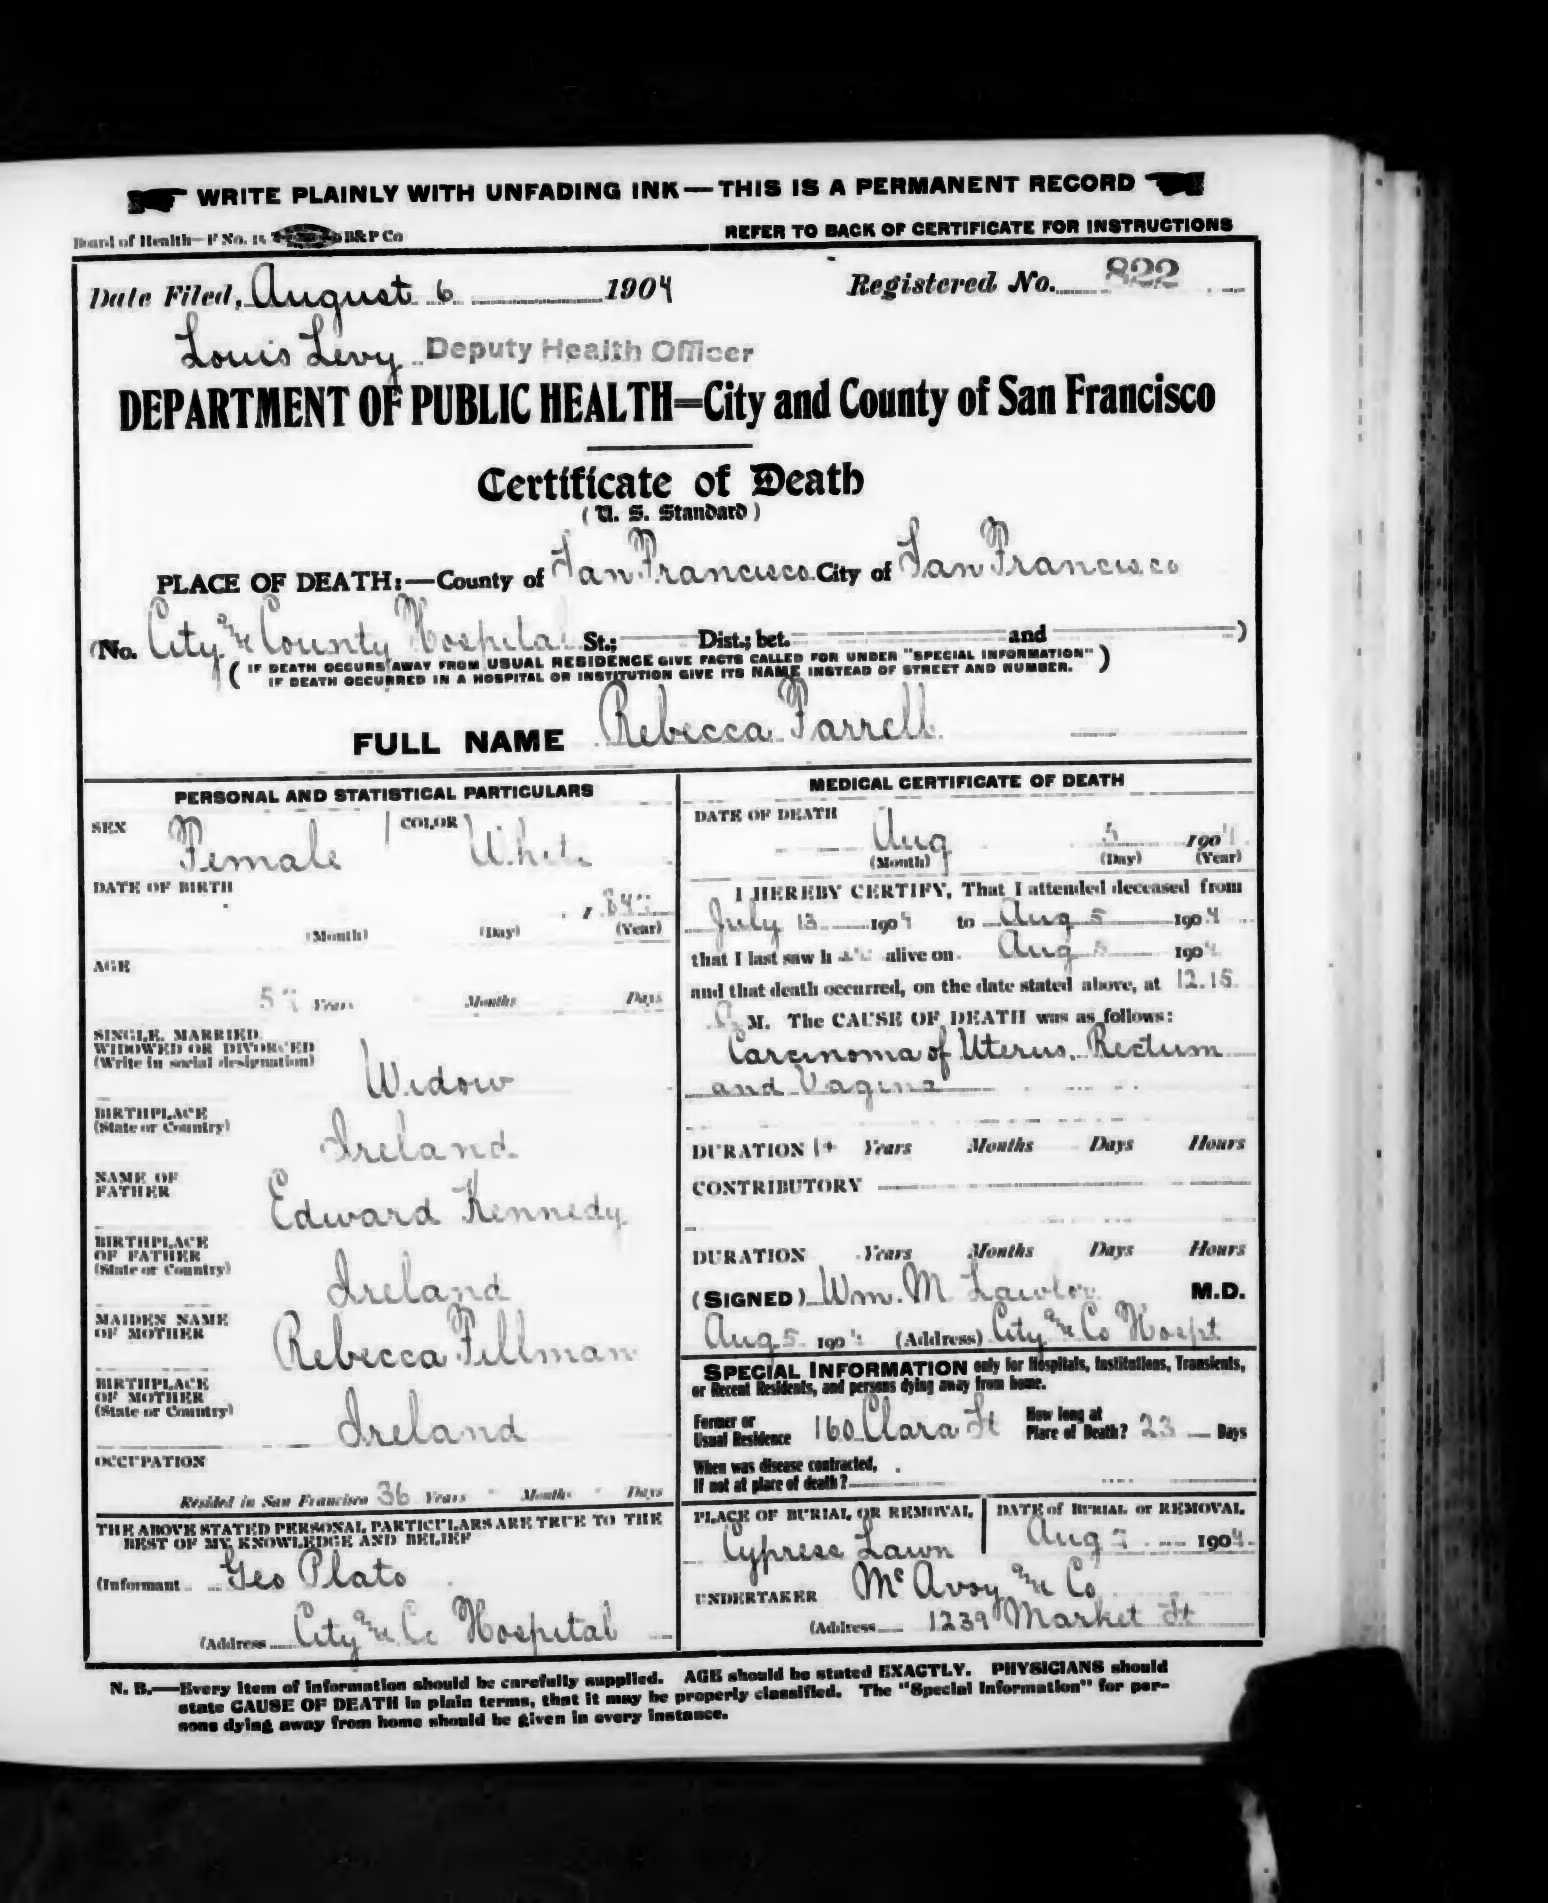 WRITE PLAINLY WITH UNFADING INK—THIS IS A PERMANENT RECORD
Board of Health—F No. B&P Co
REFER TO BACK OF CERTIFICATE FOR INSTRUCTIONS
Date Filed, August 6 1904 Registered No. 822
Louis Levy Deputy Health Officer
DEPARTMENT OF PUBLIC HEALTH=City and County of San Francisco
Certificate of Death
(U. S. Standard)
PLACE OF DEATH:—County of San Francisco City of San Francisco
(No. City and County Hospital St.; Dist.; bet. and )
( IF DEATH OCCURS AWAY FROM USUAL RESIDENCE GIVE FACTS CALLED FOR UNDER "SPECIAL INFORMATION" )
IF DEATH OCCURRED IN A HOSPITAL OR INSTITUTION GIVE ITS NAME INSTEAD OF STREET AND NUMBER.
FULL NAME Rebecca Farrell
PERSONAL AND STATISTICAL PARTICULARS
SEX Female COLOR White
DATE OF BIRTH
(Month) (Day) (Year)
AGE
Years Months Days
SINGLE, MARRIED,
WIDOWED OR DIVORCED
(Write in social designation)
Widow
BIRTHPLACE
(State or Country)
Ireland
NAME OF
FATHER
Edward Kennedy
BIRTHPLACE
OF FATHER
(State or Country)
Ireland
MAIDEN NAME
OF MOTHER
Rebecca Fillman
BIRTHPLACE
OF MOTHER
(State or Country)
Ireland
OCCUPATION
Resided in San Francisco 36 Years Months Days
THE ABOVE STATED PERSONAL PARTICULARS ARE TRUE TO THE
BEST OF MY KNOWLEDGE AND BELIEF
(Informant Geo Plato
(Address City and Co Hospital
MEDICAL CERTIFICATE OF DEATH
DATE OF DEATH
Aug 5 1904
(Month) (Day) (Year)
I HEREBY CERTIFY, That I attended deceased from
July 13 1904 to Aug 5 1904
that I last saw h alive on Aug 5 1904
and that death occurred, on the date stated above, at 12.15
M. The CAUSE OF DEATH was as follows:
Carcinoma of Uterus, Rectum
and Vagina
DURATION 1+ Years Months Days Hours
CONTRIBUTORY
DURATION Years Months Days Hours
(SIGNED) Wm. M Lawlor M.D.
Aug 5 1904 (Address) City and Co Hospt
SPECIAL INFORMATION only for Hospitals, Institutions, Transients,
or Recent Residents, and persons dying away from home.
Former or
Usual Residence 160 Clara St
How long at
Place of Death? 23 Days
When was disease contracted,
If not at place of death?
PLACE OF BURIAL OR REMOVAL
Cypress Lawn
DATE of BURIAL or REMOVAL
Aug 1904
UNDERTAKER McAvoy and Co
(Address 1239 Market St
N. B.—Every item of information should be carefully supplied. AGE should be stated EXACTLY. PHYSICIANS should
state CAUSE OF DEATH in plain terms, that it may be properly classified. The "Special Information" for per-
sons dying away from home should be given in every instance.